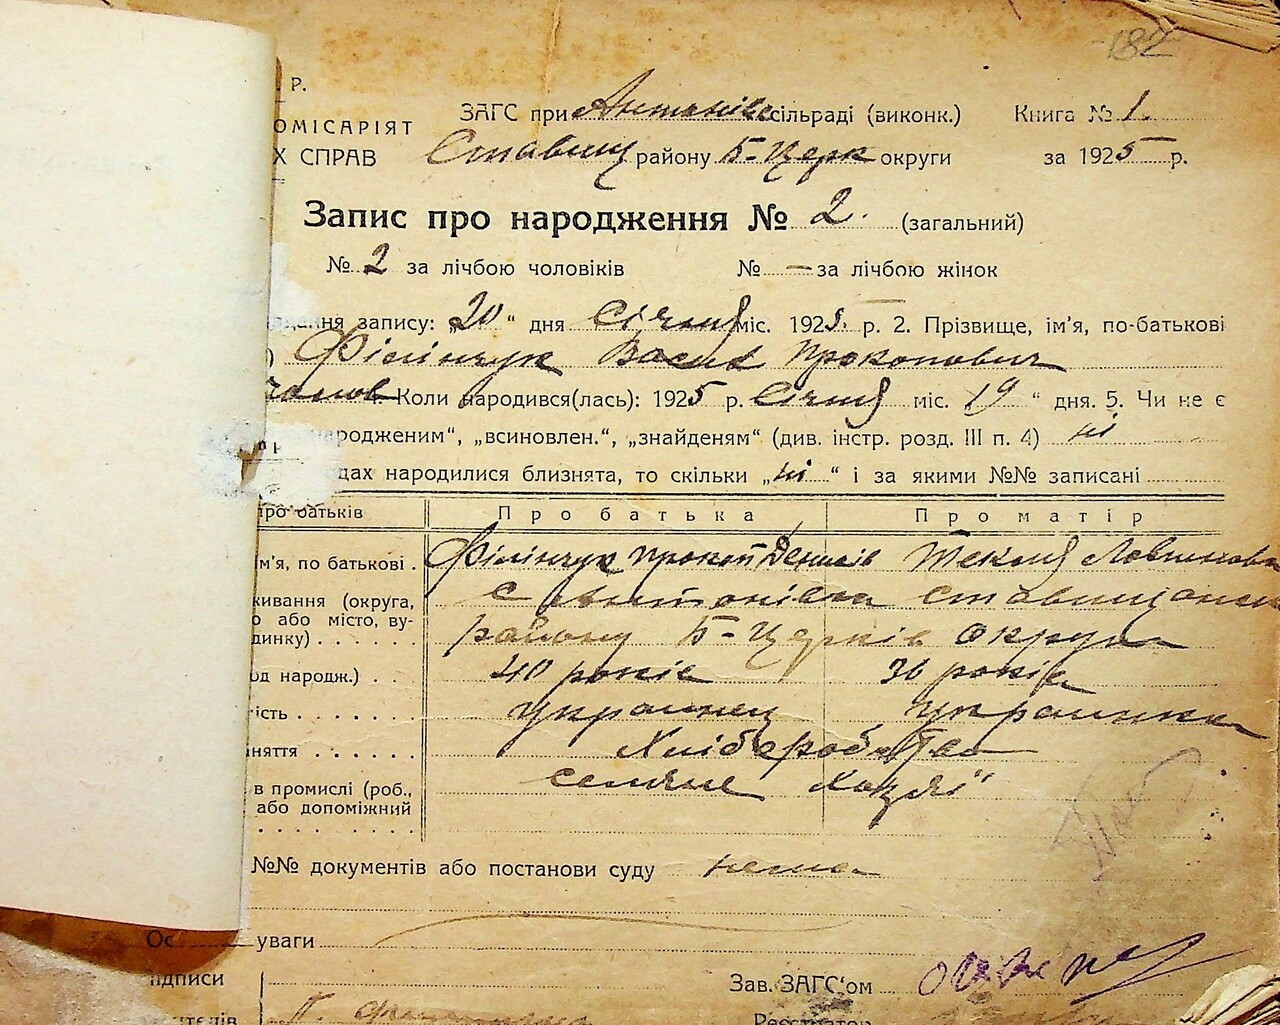 182
Р.
ОМІСАРІЯТ
ЗАГС при Антонівс сільраді (виконк.) Книга № 1.
Х СПРАВ
Ставищ району Б-Церк округи за 1925 р.
Запис про народження № 2. (загальний)
№ 2 за лічбою чоловіків № — за лічбою жінок
дання запису: „20“ дня Січня міс. 1925. р. 2. Прізвище, ім’я, по-батькові
) Філінчук Васил Прокопович
Коли народився(лась): 1925 р. Січня міс. 19“ дня. 5. Чи не є
народженим“, „всиновлен.“, „знайденям“ (див. інстр. розд. III п. 4) ні
дах народилися близнята, то скільки „ні“ і за якими №№ записані
про батьків Про батька Про матір
м’я, по батькові . Філінчук Прокоп Денисів Текля Логвинова
живання (округа, с Антонівка Ставищанск
о або місто, ву-
динку) . . . . району Б-Церків округи
од народж.) . . 40 років 36 років
ість . . . . . . українец українка
няття . . . . . Хліборобство
в промислі (роб., селяне хазяї
або допоміжний
№№ документів або постанови суду нема
Ос уваги
ідписи Зав. ЗАГС’ом
ителів Реєстратор